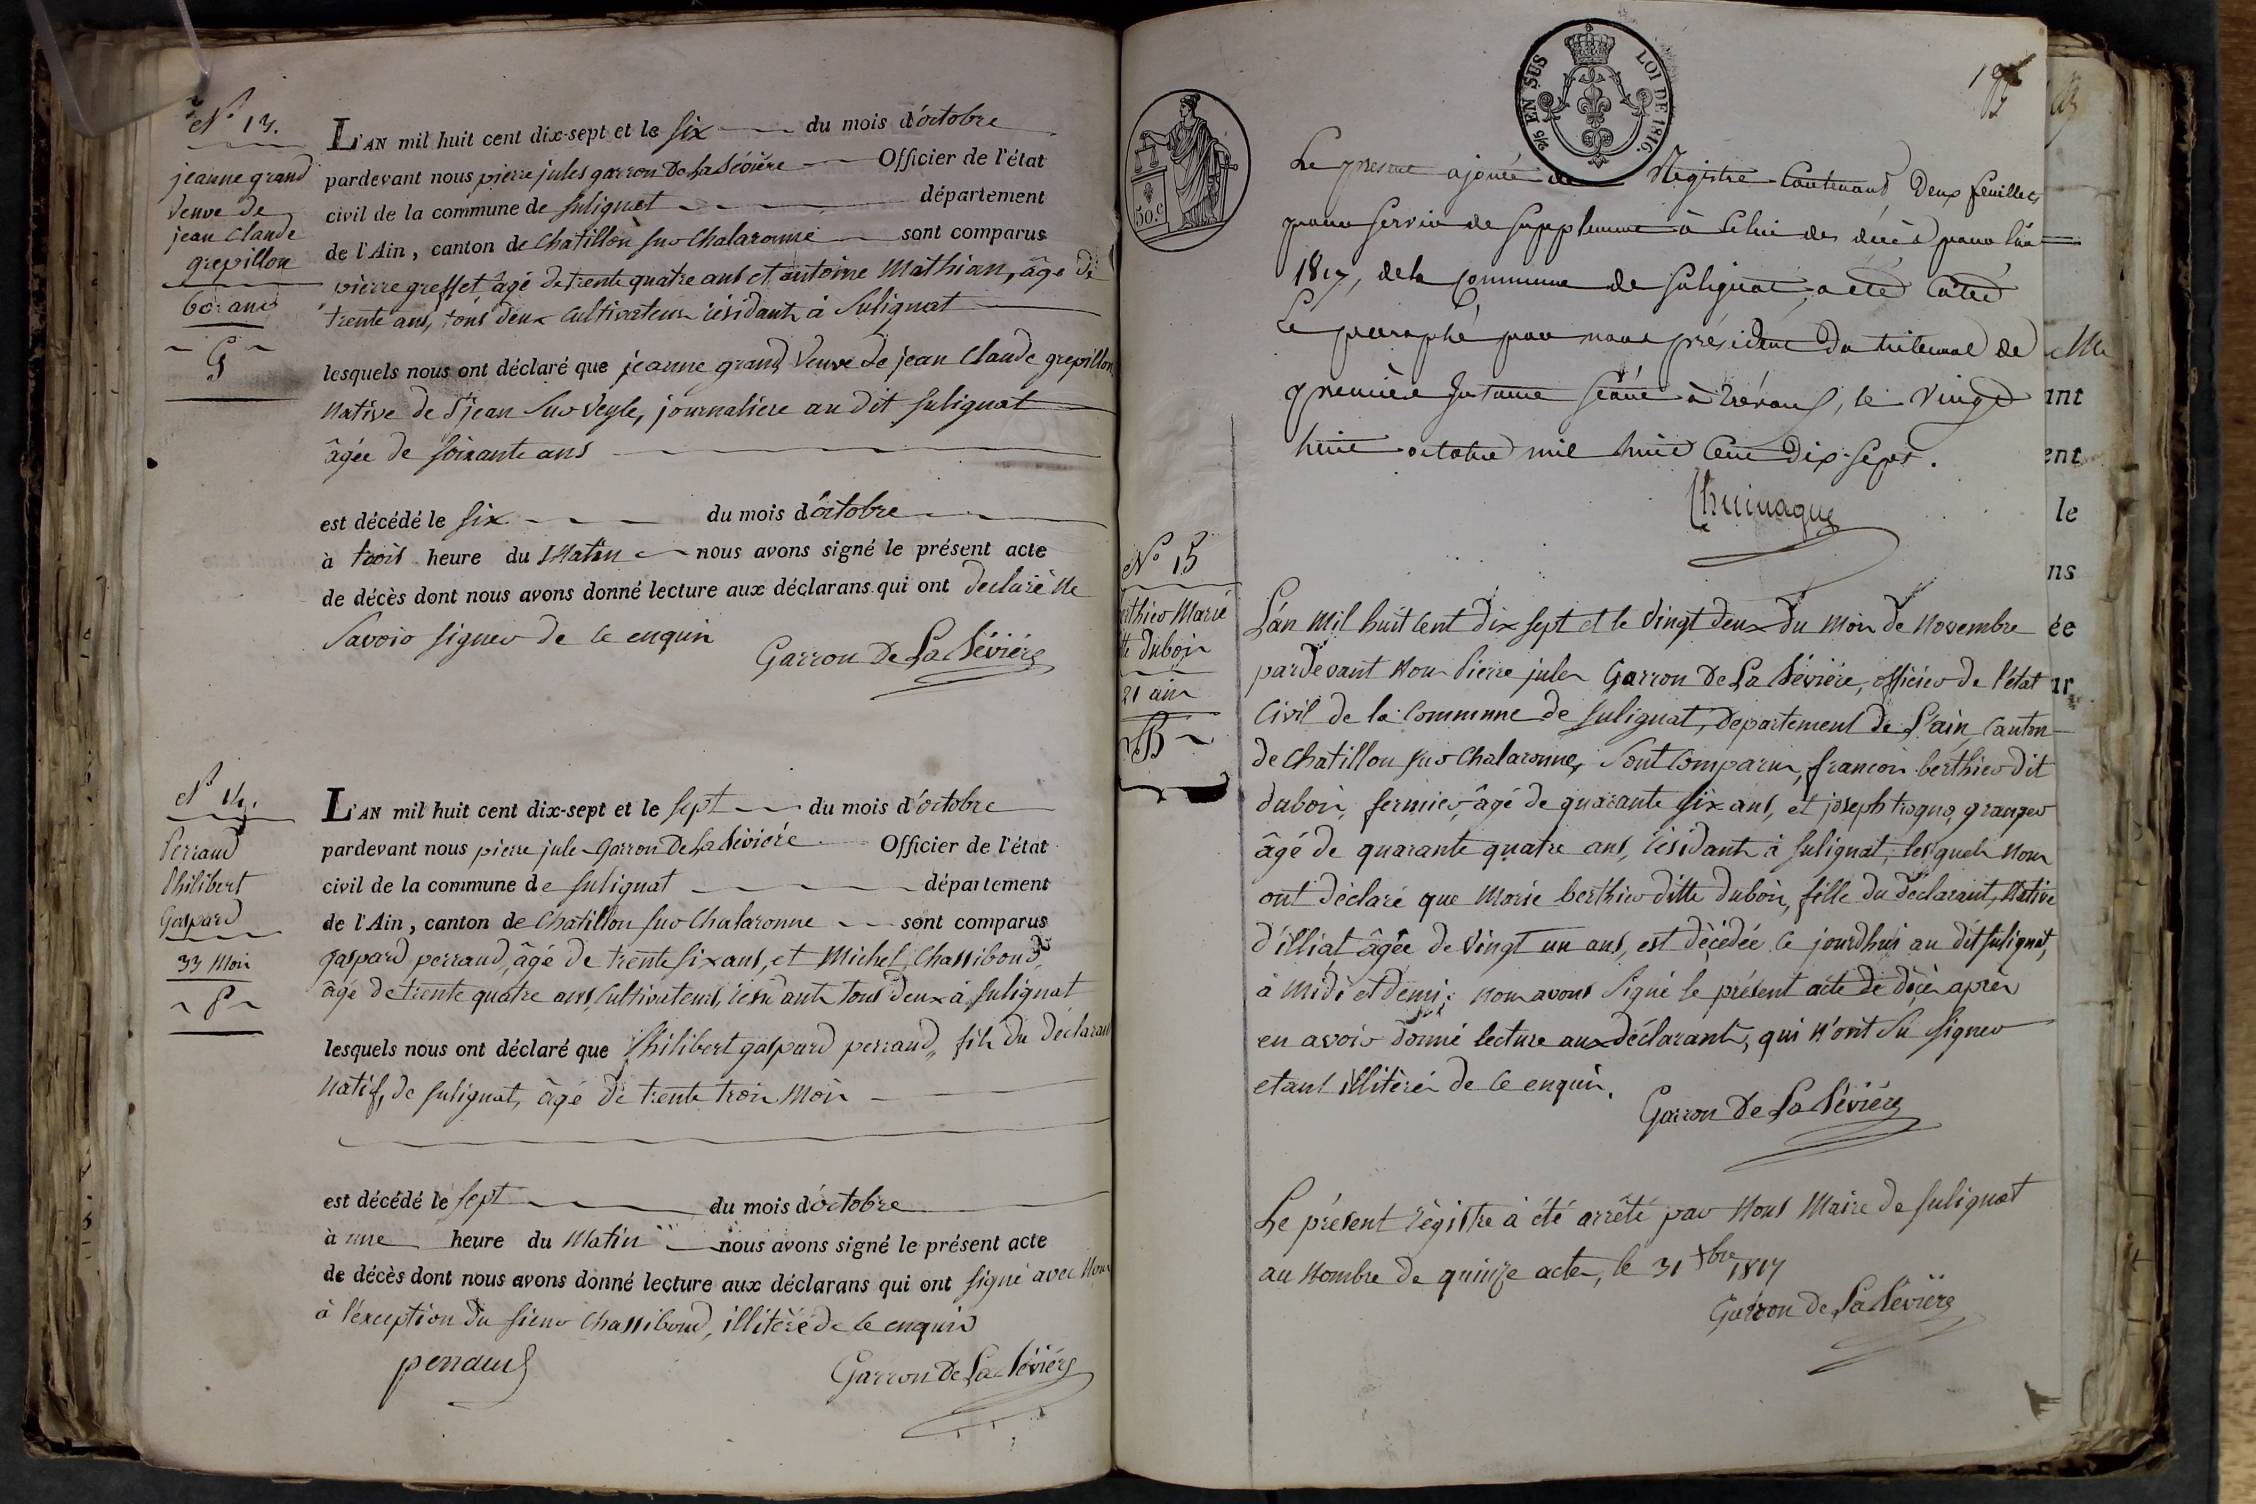 N° 13.
jeanne grand
veuve de
jean Claude
grepillon
60 ans
G
L'AN mil huit cent dix-sept et le six du mois d'octobre
pardevant nous pierre jules garron De La Séviére Officier de l'état
civil de la commune de Sulignat département
de l'Ain, canton de Chatillon sur Chalaronne sont comparus
pierre greffet âgé de trente quatre ans et antoine Mathian, âgé de
trente ans, tous deux Cultivateurs résidants à Sulignat
lesquels nous ont déclaré que jeanne grand Veuve de jean Claude grepillon
Native de St jean sur Veyle, journaliere au dit Sulignat
âgée de soixante ans
est décédé le six du mois d'octobre
à trois heure du Matin nous avons signé le présent acte
de décès dont nous avons donné lecture aux déclarans qui ont declaré Ne
Savoir signer de ce enquis
Garron De La Séviére
N° 14.
Perraud
Philibert
Gaspard
33 Mois
P
L'AN mil huit cent dix-sept et le sept du mois d'octobre
pardevant nous pierre jules Garron De La Séviére Officier de l'état
civil de la commune de Sulignat département
de l'Ain, canton de Chatillon sur Chalaronne sont comparus
gaspard perraud, âgé de trente six ans, et Michel Chassiboud,
âgé de trente quatre ans, Cultivateurs, résidants tous deux à Sulignat
lesquels nous ont déclaré que Philibert gaspard perraud, fils du déclarant
Natif, de Sulignat, âgé de trente trois Mois
est décédé le sept du mois d'octobre
à une heure du Matin nous avons signé le présent acte
de décès dont nous avons donné lecture aux déclarans qui ont signé avec Nous
à l'éxception du sieur Chassiboud, illitéré de ce enquis
perraud
Garron De La Séviére
2/5 EN SUS LOI DE 1816.
50.c
Le présent ajouté de Registre Contenant Deux feuilles
pour servir de Supplement à Celui des décès pour l'an
1817, de la Commune de Sulignat, a été Coté
Et paraphé par nous président du tribunal de
première instance séant à Trévoux, le vingt
huit octobre mil huit Cent Dix-sept.
N° 15
berthier Marie
ditte Dubois
21 ans
B
L'an Mil huit Cent Dix sept et le Vingt Deux du Mois de Novembre
pardevant Nous Pierre jules Garron De La Séviére, officier de l'état
Civil de la Commune de Sulignat, Departement de L'ain, Canton
de Chatillon sur Chalaronne, Sont Comparus, francois berthier dit
dubois, fermier, âgé de quarante six ans, et joseph granger
âgé de quarante quatre ans, résidants à Sulignat, lesquels Nous
ont déclaré que Marie berthier ditte Dubois, fille du declarant, Native
d'illiat, âgée de Vingt un ans, est décédée ce jourdhui au dit Sulignat,
à Midi et Demi; Nous avons Signé le présent acte de décès après
en avoir Donné lecture aux déclarants, qui N'ont Su signer
etant illitérés de ce enquis.
Garron De La Séviére
Le présent régistre à été arrêté par Nous Maire de Sulignat
au Nombre de quinze actes, le 31 xbre 1817
Garron de La Séviére
ant
ent
le
ns
ée